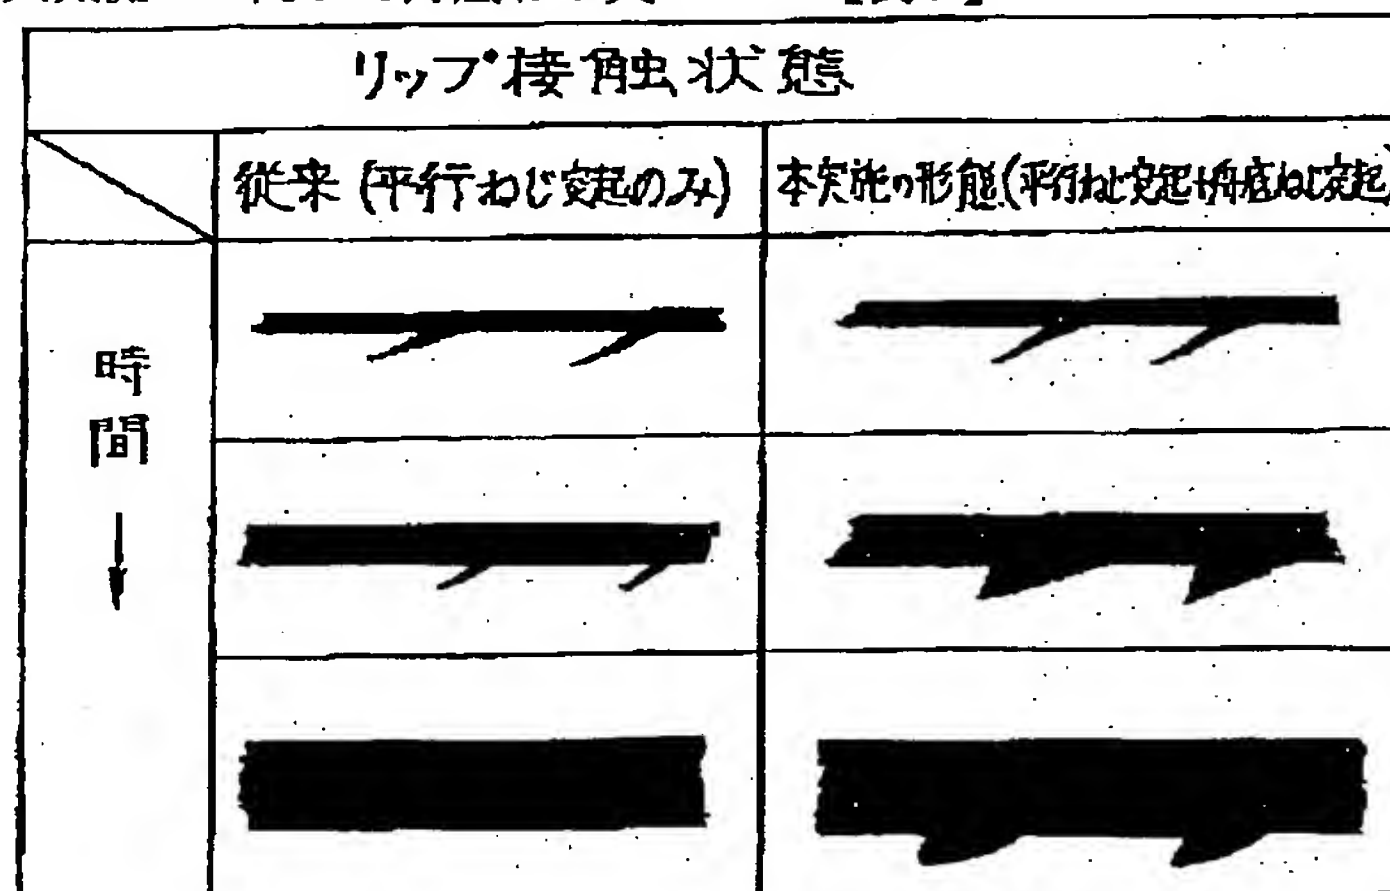 リップ接触状態
従来(平行ねじ突起のみ)
本実施の形態(平行ねじ突起+舟底ねじ突起)
時
間